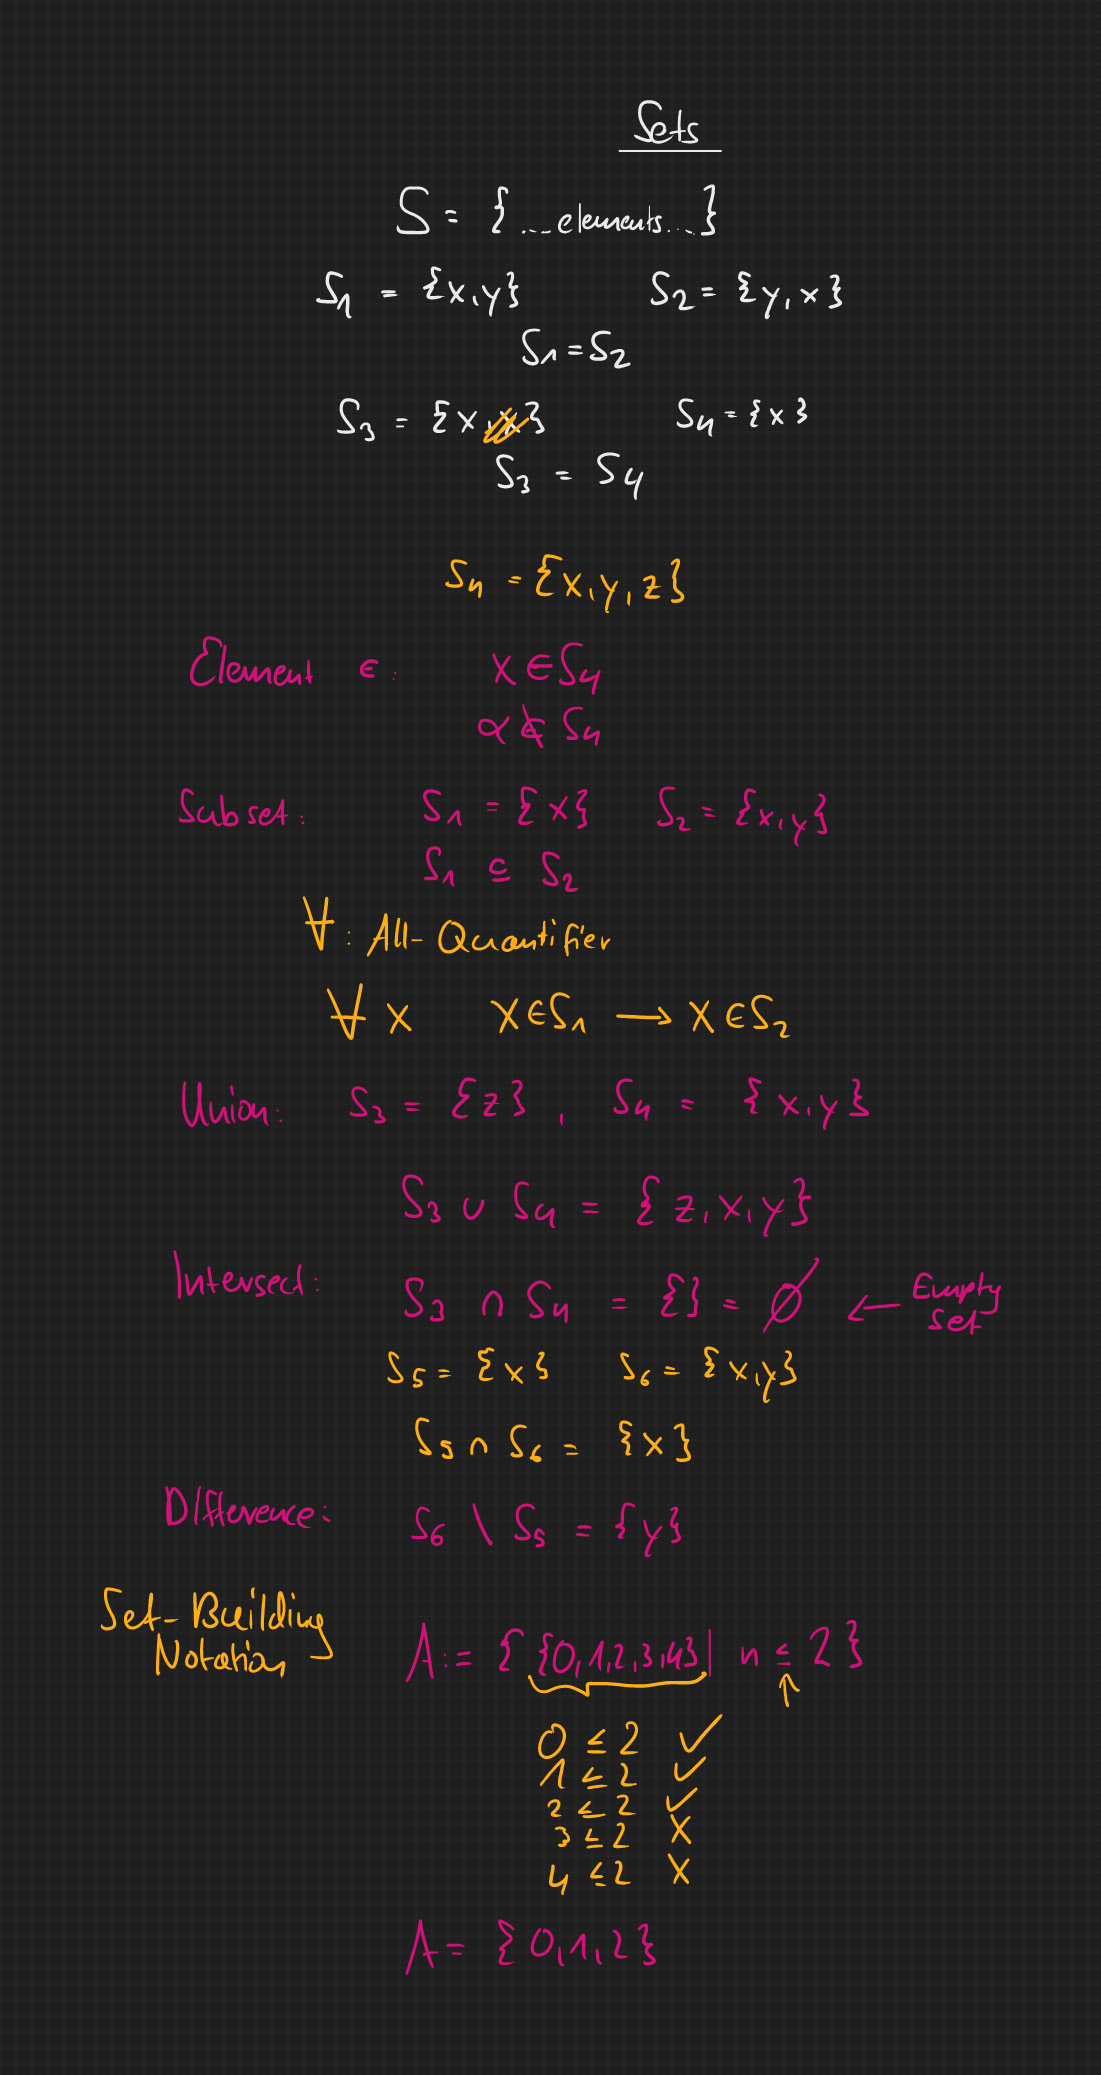 Sets
S = {...elements...}
S₁ = {x,y} S₂ = {y,x}
S₁ = S₂
S₃ = {x,x} S₄ = {x}
S₃ = S₄
S₄ = {x,y,z}
Element ∈: x ∈ S₄
α ∉ S₄
Subset: S₁ = {x} S₂ = {x,y}
S₁ ⊆ S₂
∀: All-Quantifier
∀ x x ∈ S₁ → x ∈ S₂
Union: S₃ = {z}, S₄ = {x,y}
S₃ ∪ S₄ = {z,x,y}
Intersect: S₃ ∩ S₄ = {} = ∅ ← Empty Set
S₅ = {x} S₆ = {x,y}
S₅ ∩ S₆ = {x}
Difference: S₆ \ S₅ = {y}
Set-Building
Notation A := { {0,1,2,3,4} | n ≤ 2 }
↑
0 ≤ 2 ✓
1 ≤ 2 ✓
2 ≤ 2 ✓
3 ≤ 2 X
4 ≤ 2 X
A = {0,1,2}